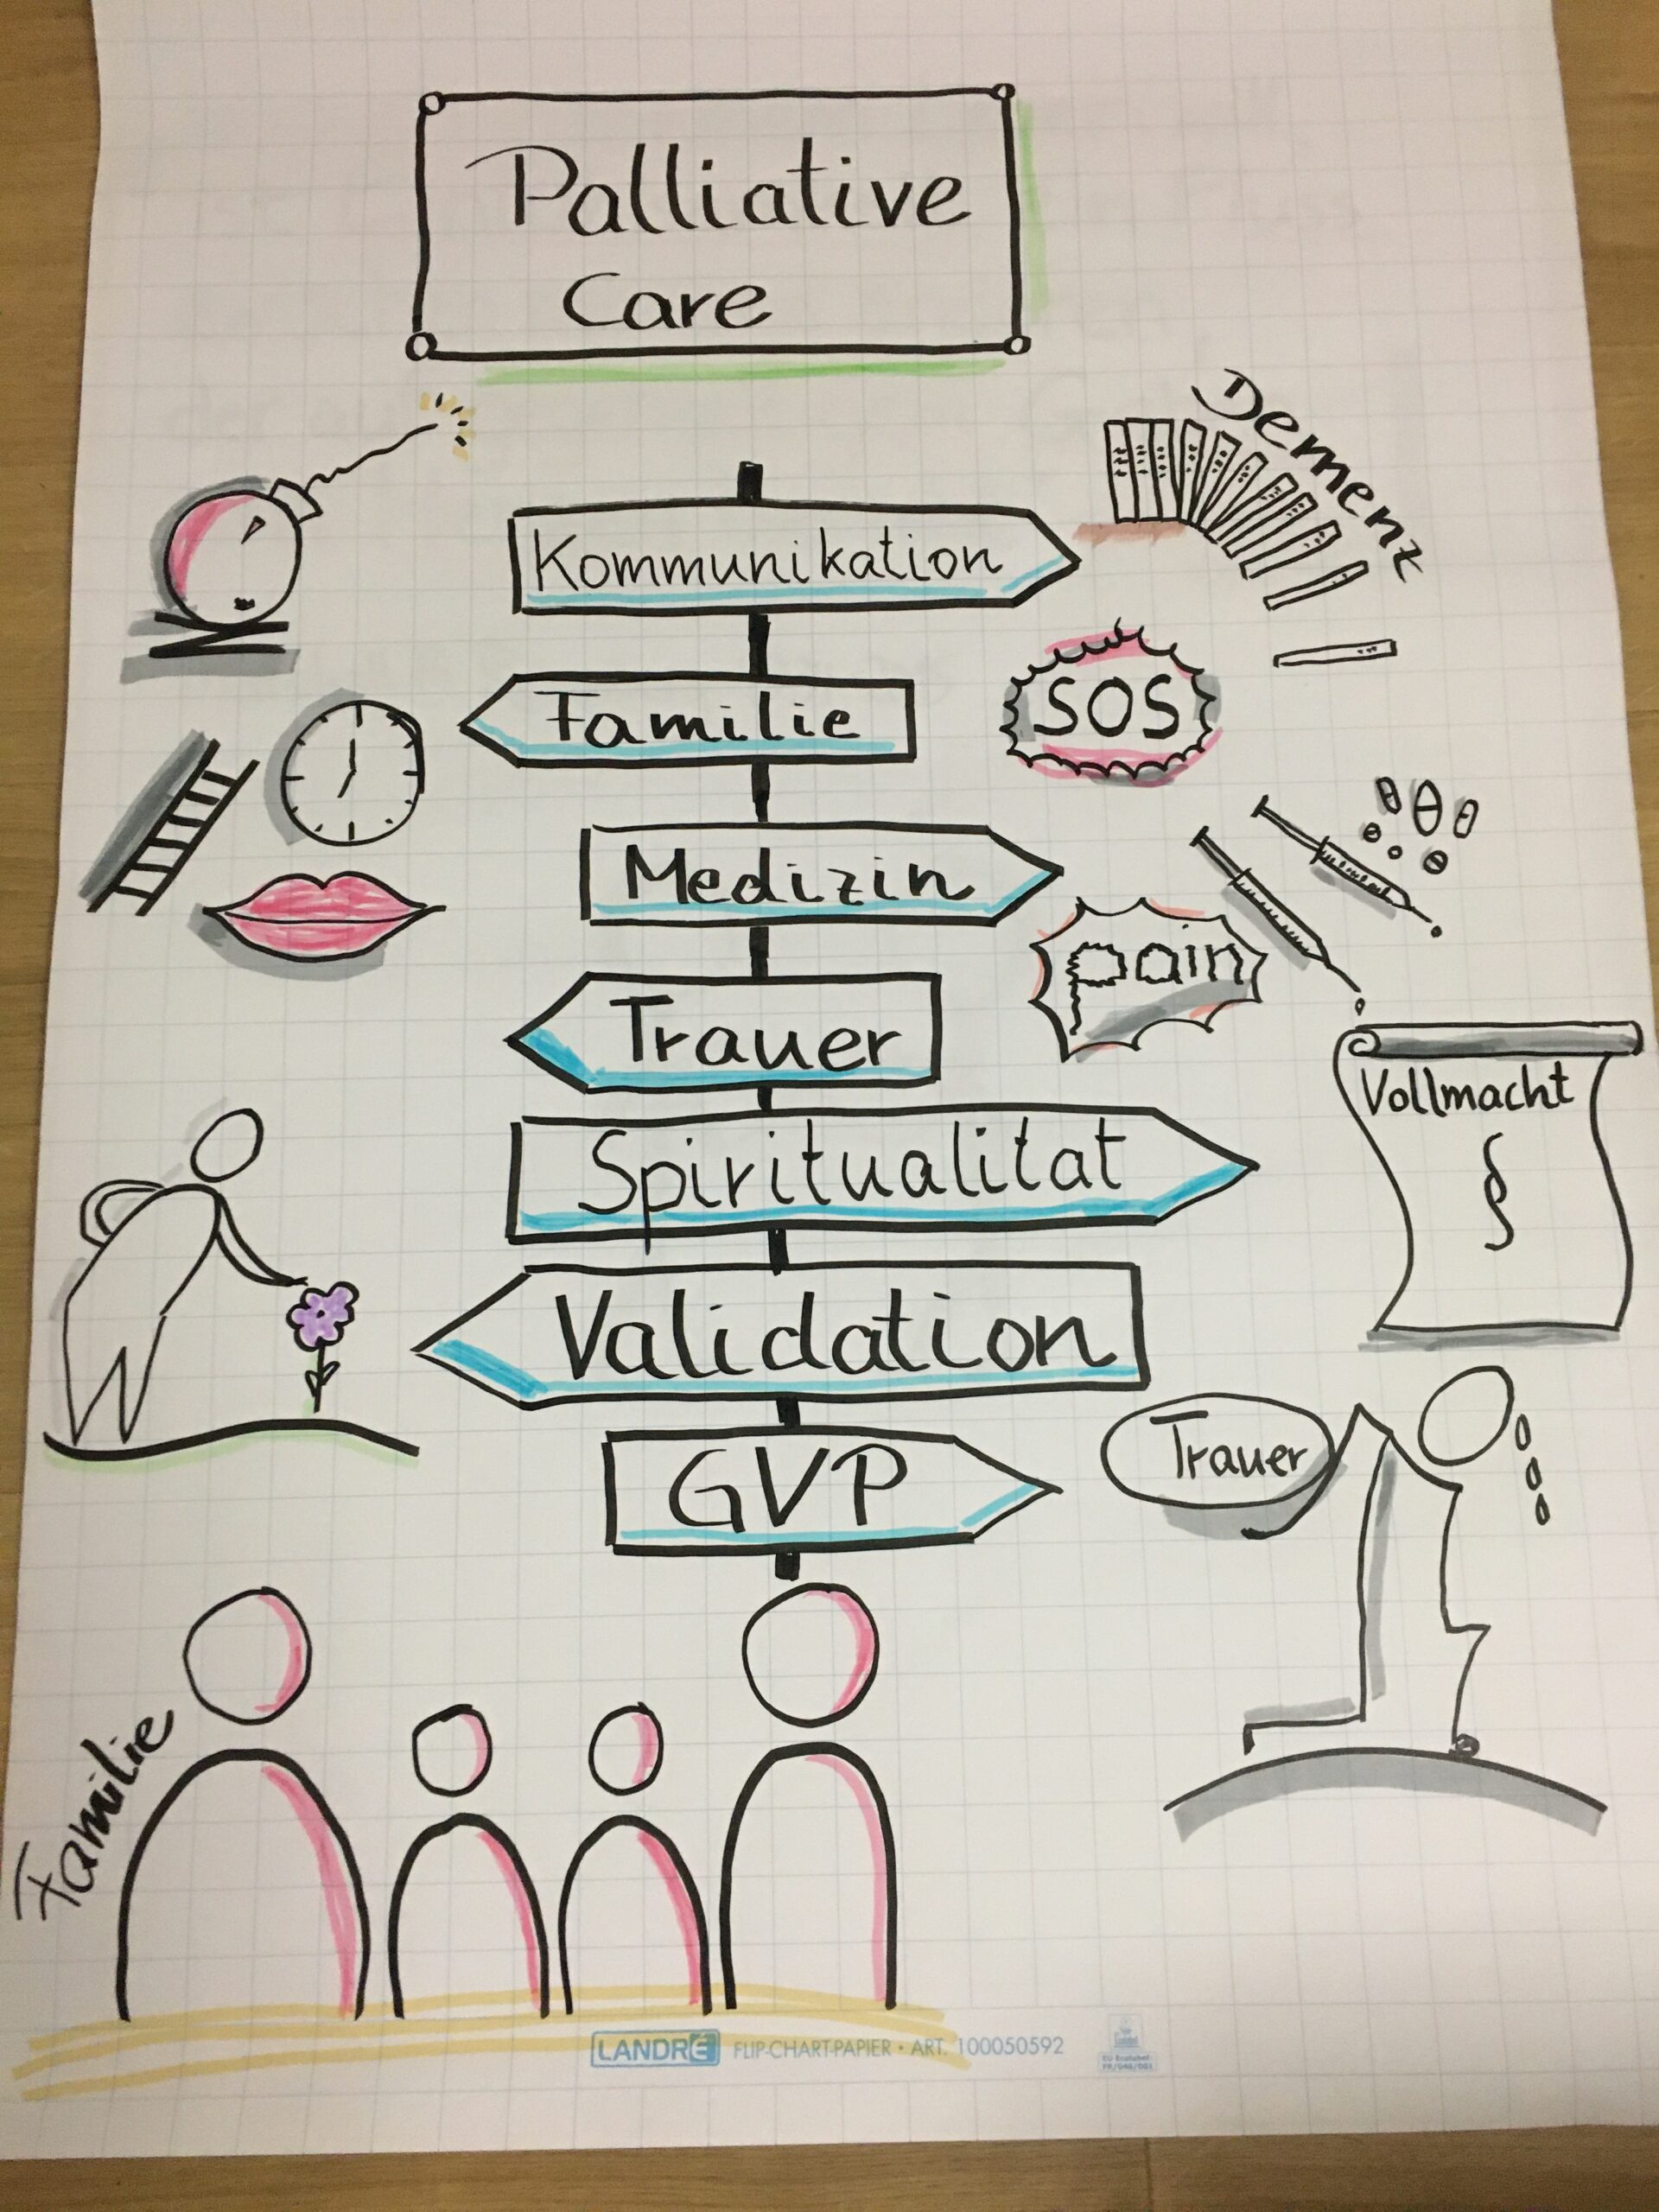 Palliative
Care
Demenz
Kommunikation
SOS
Familie
Medizin
pain
Trauer
Vollmacht
§
Spiritualitat
Validation
Trauer
GVP
Familie
LANDRÉ FLIP-CHART-PAPIER • ART. 100050592